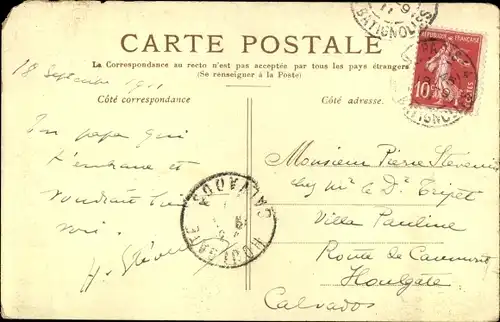 CARTE POSTALE
La Correspondance au recto n'est pas acceptée par tous les pays étrangers
(Se renseigner à la Poste)
Côté correspondance
Côté adresse.
18 Septembre
Un papa qui
t'embrasse et
voudrait bien
Monsieur Pierre
chez Mr le Dr Tripet
Villa Pauline
Route de Caumont
Houlgate
Calvados
RÉPUBLIQUE FRANÇAISE
10
POSTES
BATIGNOLLES
HOULGATE
CALVADOS